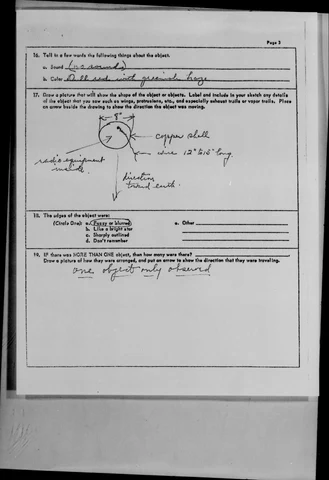 Page 3
16. Tell in a few words the following things about the object.
a. Sound (no sounds)
b. Color All red with greenish haze
17. Draw a picture that will show the shape of the object or objects. Label and include in your sketch any details
of the object that you saw such as wings, protrusions, etc., and especially exhaust trails or vapor trails. Place
an arrow beside the drawing to show the direction the object was moving.
8"
copper shell
wire 12" to 16" long.
radio equipment
inside.
direction
toward earth.
18. The edges of the object were:
(Circle One): a. Fuzzy or blurred e. Other
b. Like a bright star
c. Sharply outlined
d. Don't remember
19. IF there was MORE THAN ONE object, then how many were there?
Draw a picture of how they were arranged, and put an arrow to show the direction that they were traveling.
one object only observed